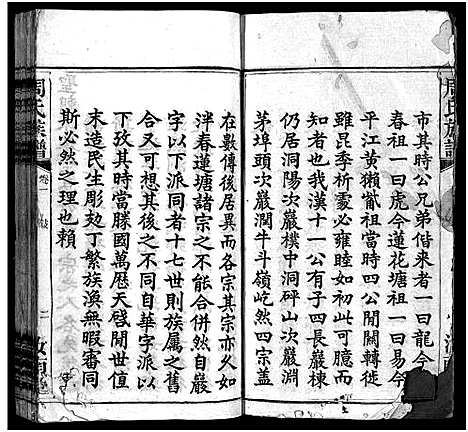 市其時公兄弟偕來者一曰龍今
春祖一曰虎今蓮花塘祖一曰易今
平江黄獺甯祖當時四公閒關轉徙
雖昆季析爨必雍睦如初此可臆而
知者也我漢十一公有子四長巖棟
居洞陽次巖樸中洞砰山次巖淵
茅埠頭次巖澗牛斗嶺屹然四宗蓋
在數傳後居異而各宗其宗亦久如
泮春蓮塘諸宗之不能合併然自巖
字以下派同者十七世則族屬之舊
合又可想其後之不同自華字派以
下攷其時當勝國萬厯天啓閒世值
末造民生彫劾丁繁族渙無暇審同
斯必然之理也賴
周氏族譜
卷一
二
周氏族譜